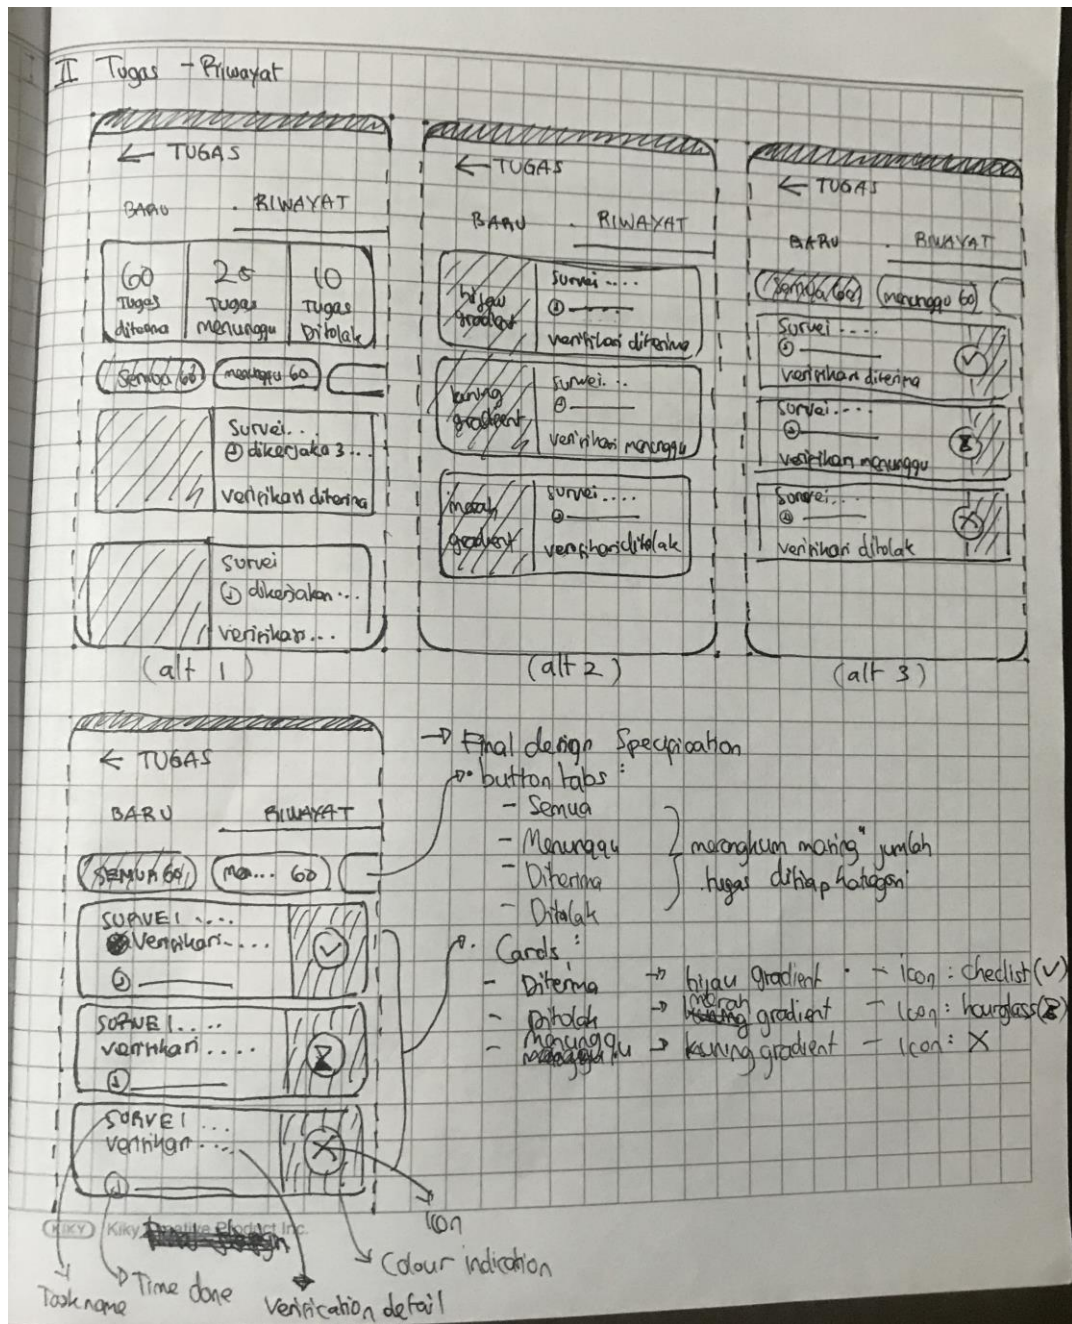 II Tugas - Riwayat
← TUGAS
BARU . RIWAYAT
60 Tugas diterima
20 Tugas menunggu
10 Tugas Ditolak
Semua 60
menunggu 60
Survei...
dikerjaka 3...
verifikasi diterima
Survei
dikerjakan...
verifikasi...
(alt 1)
← TUGAS
BARU . RIWAYAT
hijau gradient
Survei....
verifikasi diterima
kuning gradient
Survei...
verifikasi menunggu
merah gradient
Survei....
verifikasi ditolak
(alt 2)
← TUGAS
BARU . RIWAYAT
Semua 60
menunggu 60
Survei....
verifikasi diterima
Survei....
verifikasi menunggu
Survei....
verifikasi ditolak
(alt 3)
← TUGAS
BARU RIWAYAT
SEMUA 60
Men... 60
SURVEI....
Verifikasi....
SURVEI....
verifikasi....
SURVEI...
verifikasi....
Task name
Time done
Verification detail
Colour indication
Icon
→ Final design Specification
button tabs:
- Semua
- Menunggu
- Diterima
- Ditolak
merangkum masing" jumlah
tugas ditiap kategori
Cards:
- Diterima → hijau gradient - icon: checlist (✓)
- Ditolak → merah gradient - Icon: hourglass (⧗)
- menunggu → kuning gradient - Icon: X
KIKY Kiky Creative Product Inc.